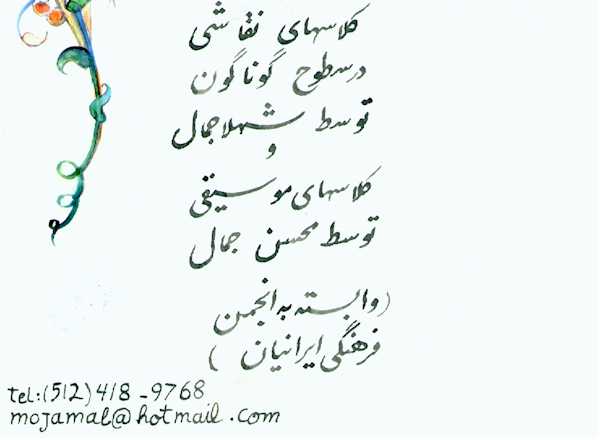 کلاسهای نقاشی
در سطوح گوناگون
توسط شهلا جمال
و
کلاسهای موسیقی
توسط محسن جمال
(وابسته به انجمن
فرهنگی ایرانیان )
tel:(512)418-9768
mojamal@hotmail.com